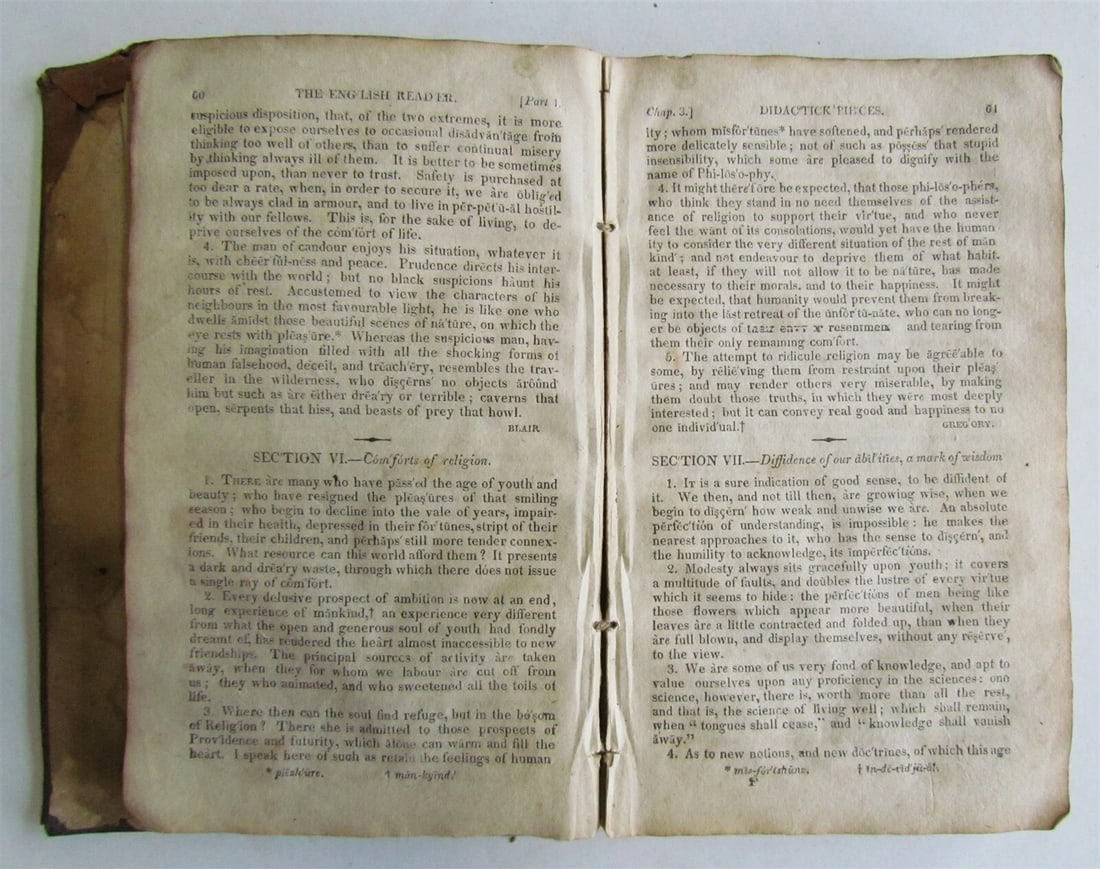 60 THE ENG'LISH READ'ER. [Part 1.
suspicious disposition, that, of the two extremes, it is more
eligible to expose ourselves to occasional disădvăn'tāge from
thinking too well of others, than to suffer continual misery
by thinking always ill of them. It is better to be sometimes
imposed upon, than never to trust. Safety is purchased at
too dear a rate, when, in order to secure it, we åre öblig'ed
to be always clad in armour, and to live in pēr-pĕt'ū-ăl hostil-
ity with our fellows. This is, for the sake of living, to de-
prive ourselves of the cóm'fórt of life.
4. The man of candour enjoys his situation, whatever it
is, with chēēr'fûl-nĕss and peace. Prudence directs his inter-
course with the world; but no black suspicions häunt his
hours of rest. Accustomed to view the characters of his
neighbours in the most favourable light, he is like one who
dwells ămidst those beautiful scenes of nā'tūre, on which the
eye rests with plĕaş'ūre.* Whereas the suspicious man, hav-
ing his imagination filled with all the shocking forms of
human falsehood, deceit, and trĕach'ĕry, resembles the trav-
eller in the wilderness, who dişçĕrns' no objects ăröûnd'
him but such as åre ēither drēa'ry or terrible; caverns that
open, sĕrpents that hiss, and beasts of prey that howl.
BLAIR.
SEC'TION VI.—Cóm'fórts of religion.
1. THERE åre many who have păss'ed the age of youth and
beauty; who have resigned the plĕaş'ūres of that smiling
season; who begin to decline into the vale of years, impair-
ed in their health, depressed in their fŏr'tūnes, stript of their
friends, their children, and pĕrhăps' still more tender connex-
ions. What resource can this world afford them? It presents
a dark and drēa'ry waste, through which there dóes not issue
a single ray of cóm'fórt.
2. Every delusive prospect of ambition is now at an end,
long experience of mănkīnd,† an experience very different
from what the open and generous soul of youth had fondly
dreamt of, has rendered the heårt almost inaccessible to new
friendships. The principal sources of activity åre taken
ăwāy, when they for whom we labour åre cut off from
us; they who animated, and who sweetened all the toils of
life.
3. Where then can the soul find refuge, but in the bo'şom
of Relig'ion? There she is admitted to those prospects of
Prov'idence and futurity, which ălōne can wårm and fill the
heårt. I speak here of such as retain the feelings of human
* plĕzh'ūre. † măn-kyīnd'.
Chap. 3.] DIDAC'TICK PIE'CES. 61
ity; whom mĭsfŏr'tūnes* have softened, and pĕrhăps' rendered
more delicately sensible; not of such as pŏşşĕss' that stupid
insensibility, which some åre pleased to dignify with the
name of Phi-lŏs'o-phy.
4. It might thĕre'fŏre be expected, that those phi-lŏs'o-phĕrs,
who think they stand in no need themselves of the assist-
ance of religion to support their vĭr'tue, and who never
feel the wånt of its consolations, would yet have the human
ity to consider the very different situation of the rest of măn
kind'; and not endeavour to deprive them of what habit.
at least, if they will not allow it to be nā'tūre, has made
necessary to their morals, and to their happiness. It might
be expected, that humanity would prevent them from break-
ing into the låst retreat of the ŭnfŏr'tū-nāte, who can no long-
er be objects of resentmen and tearing from
them their only remaining com'fort.
5. The attempt to ridicule religion may be ăgrēē'able to
some, by rēliē'ving them from restraint upon their plĕaş'
ūres; and may render others very miserable, by making
them doubt those truths, in which they wĕre most deeply
interested; but it can convey real good and happiness to no
one individ'ual.† GREG'ORY.
SEC'TION VII.—Diffidence of our ăbil'ities, a mark of wisdom
1. IT is a sure indication of good sense, to be diffident of
it. We then, and not till then, åre growing wise, when we
begin to dişçĕrn' how weak and unwise we åre. An absolute
pĕrfĕc'tión of understanding, is impossible: he makes the
nearest approaches to it, who has the sense to dişçĕrn', and
the humility to acknowledge, its impĕrfĕc'tións.
2. Modesty always sits gracefully upon youth; it covers
a multitude of faults, and doübles the lustre of every virtue
which it seems to hide: the pĕrfĕc'tións of men being like
those flowers which appear more beautiful, when their
leaves åre a little contracted and folded up, than when they
åre full blown, and display themselves, without any rĕşĕrve',
to the view.
3. We åre some of us very fond of knowledge, and apt to
value ourselves upon any proficiency in the sciences: one
science, however, there is, worth more than all the rest,
and that is, the science of living well; which shall remain,
when "tongues shall cease," and "knowledge shall vanish
ăwāy."
4. As to new notions, and new dŏc'trines, of which this age
* mĭs-fŏr'tshūnz. † ĭn-dĕ-vĭd'jū-ăl.
F